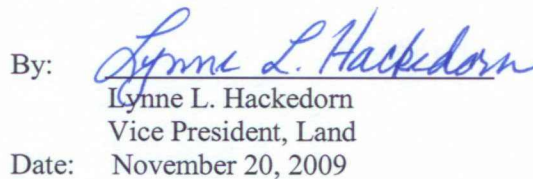 By: Lynne L. Hackedorn
Lynne L. Hackedorn
Vice President, Land
Date: November 20, 2009